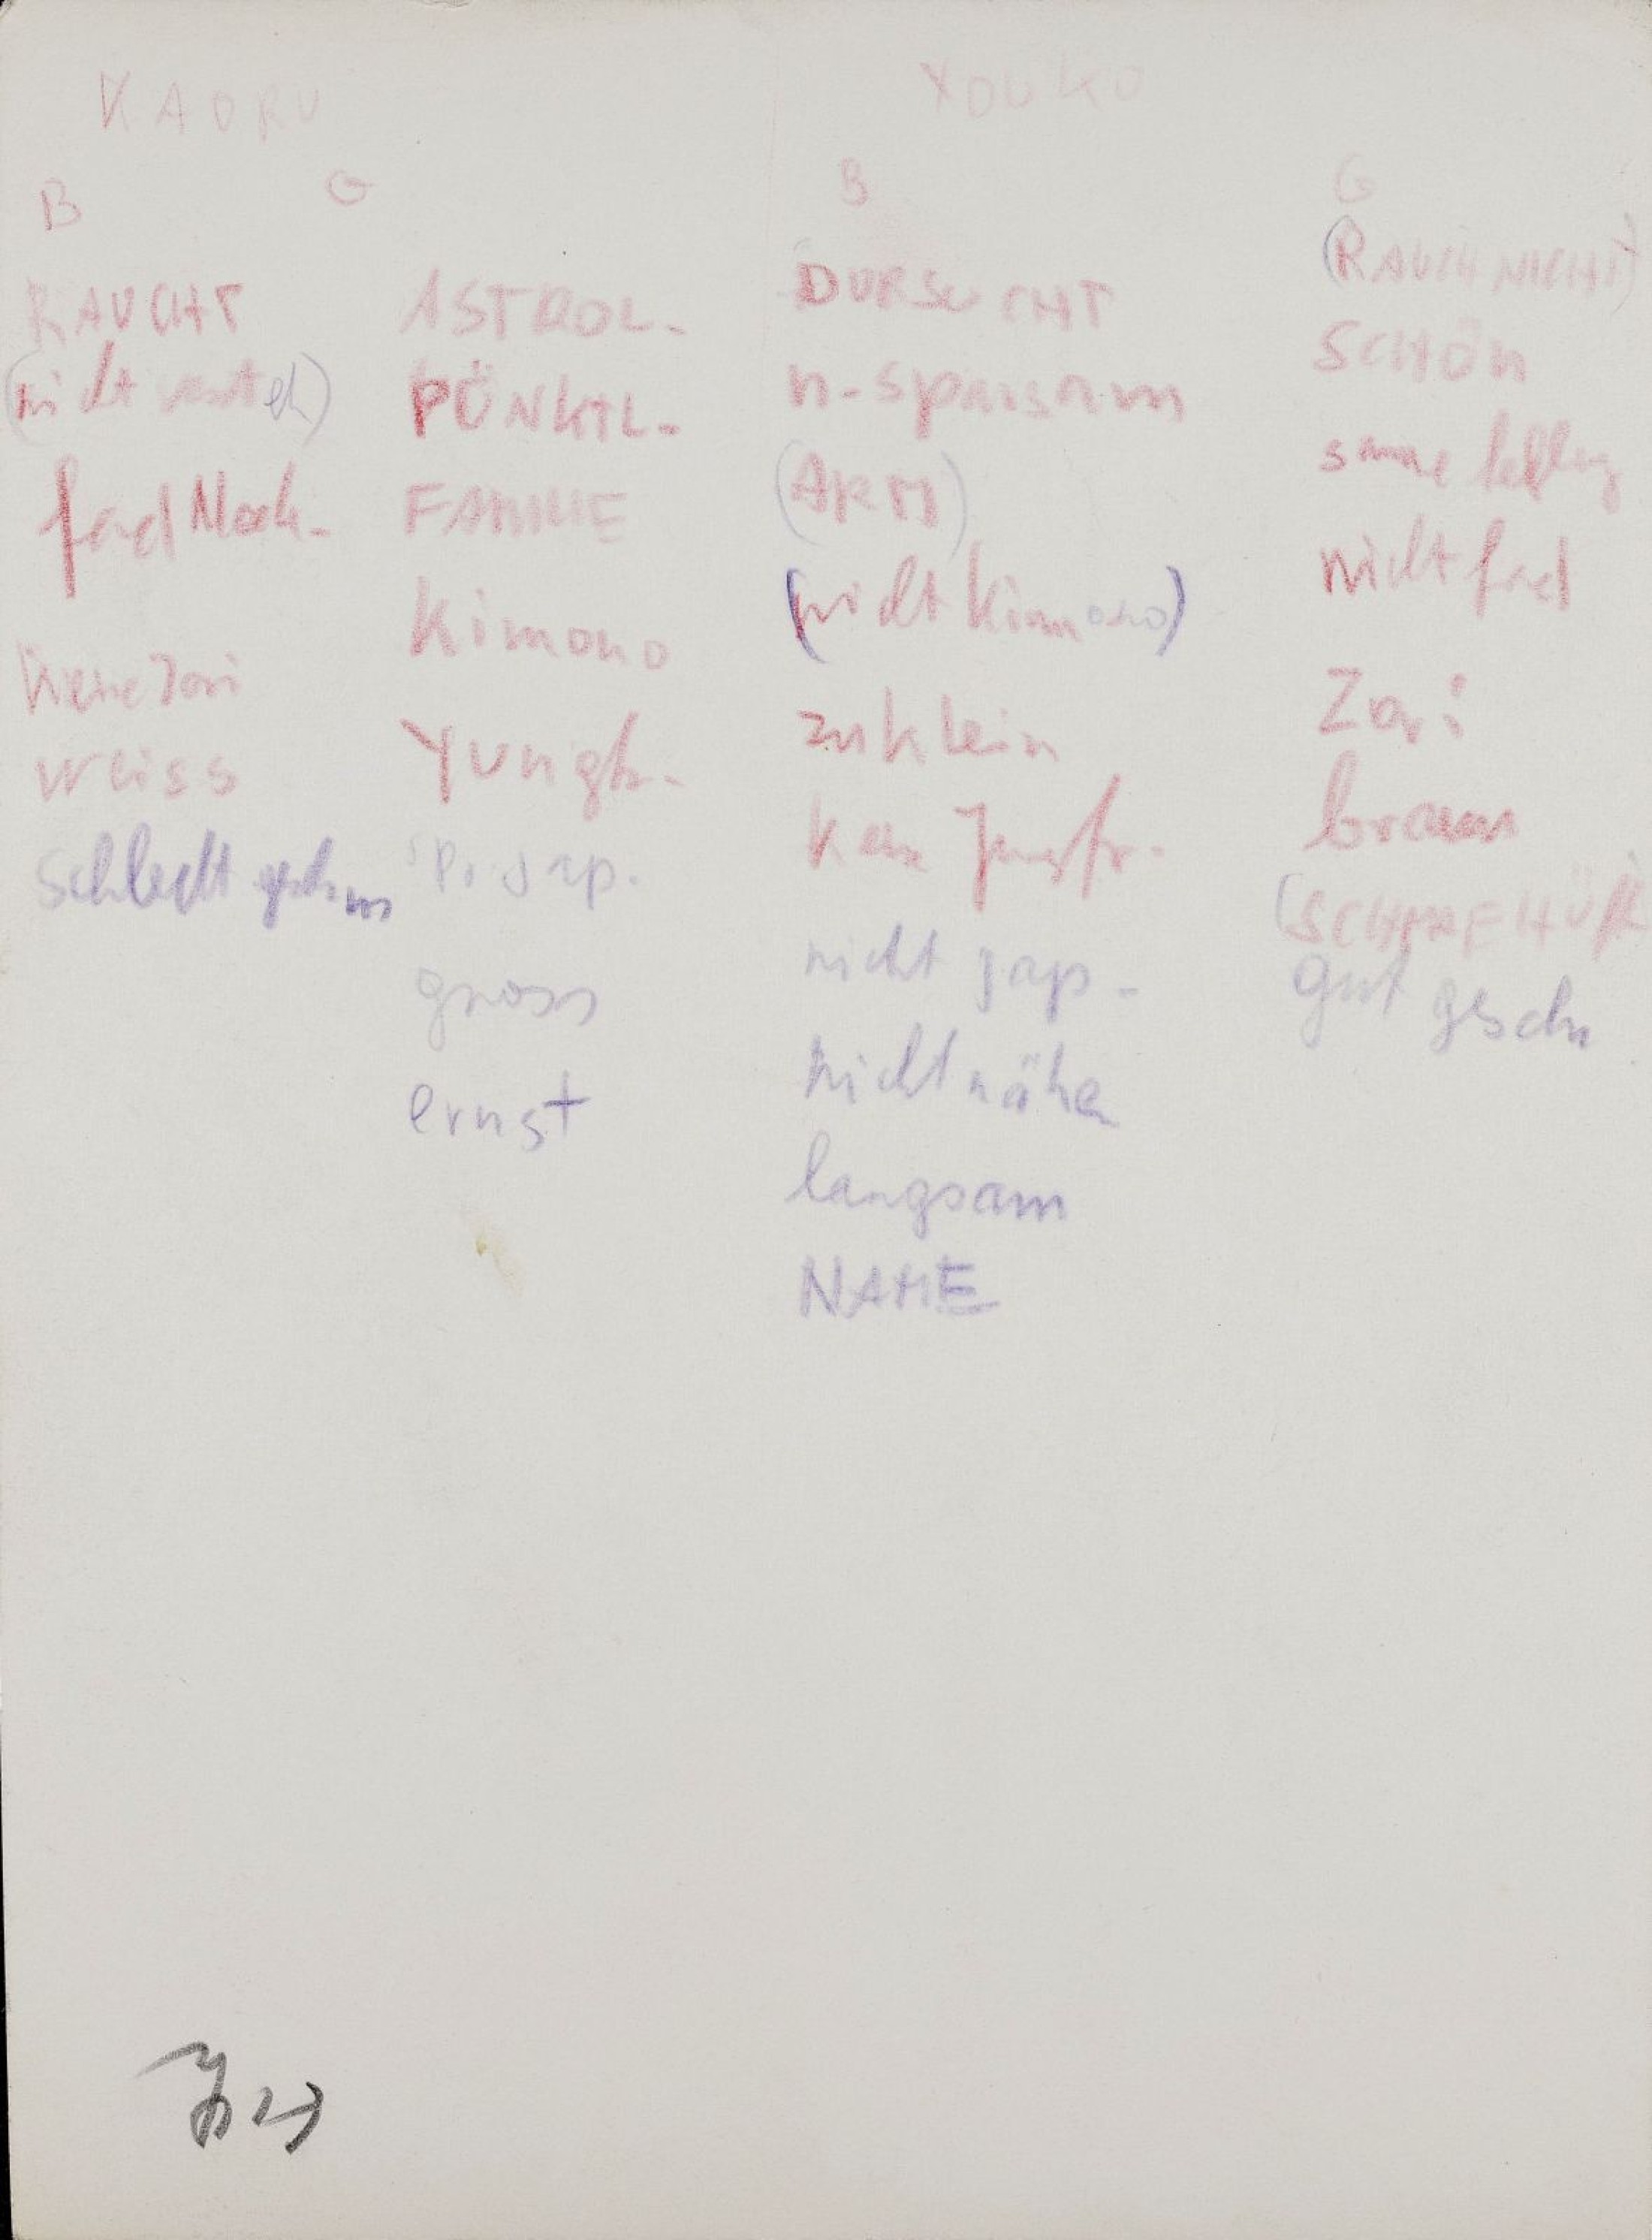 KAORU
B G
RAUCHT
(nicht
fad
weiss
schlecht
ASTROL-
PÜNKTL-
FAMILIE
Kimono
Yungfr-
Jap.
gross
ernst
YOUKO
B
DURSU CHT
n-sparsam
(ARM)
(nicht Kimono)
zu klein
kein Jungfr-
nicht jap-
nicht nähen
langsam
NAME
G
(RAUCH NICHT)
SCHÖN
nicht fad
braun
gut gesch